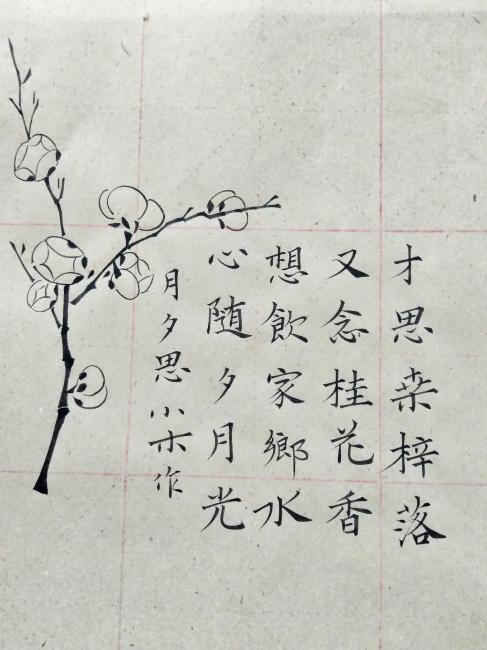 才思桒梓落
又念桂花香
想飲家鄉水
心随夕月光
月夕思小木作